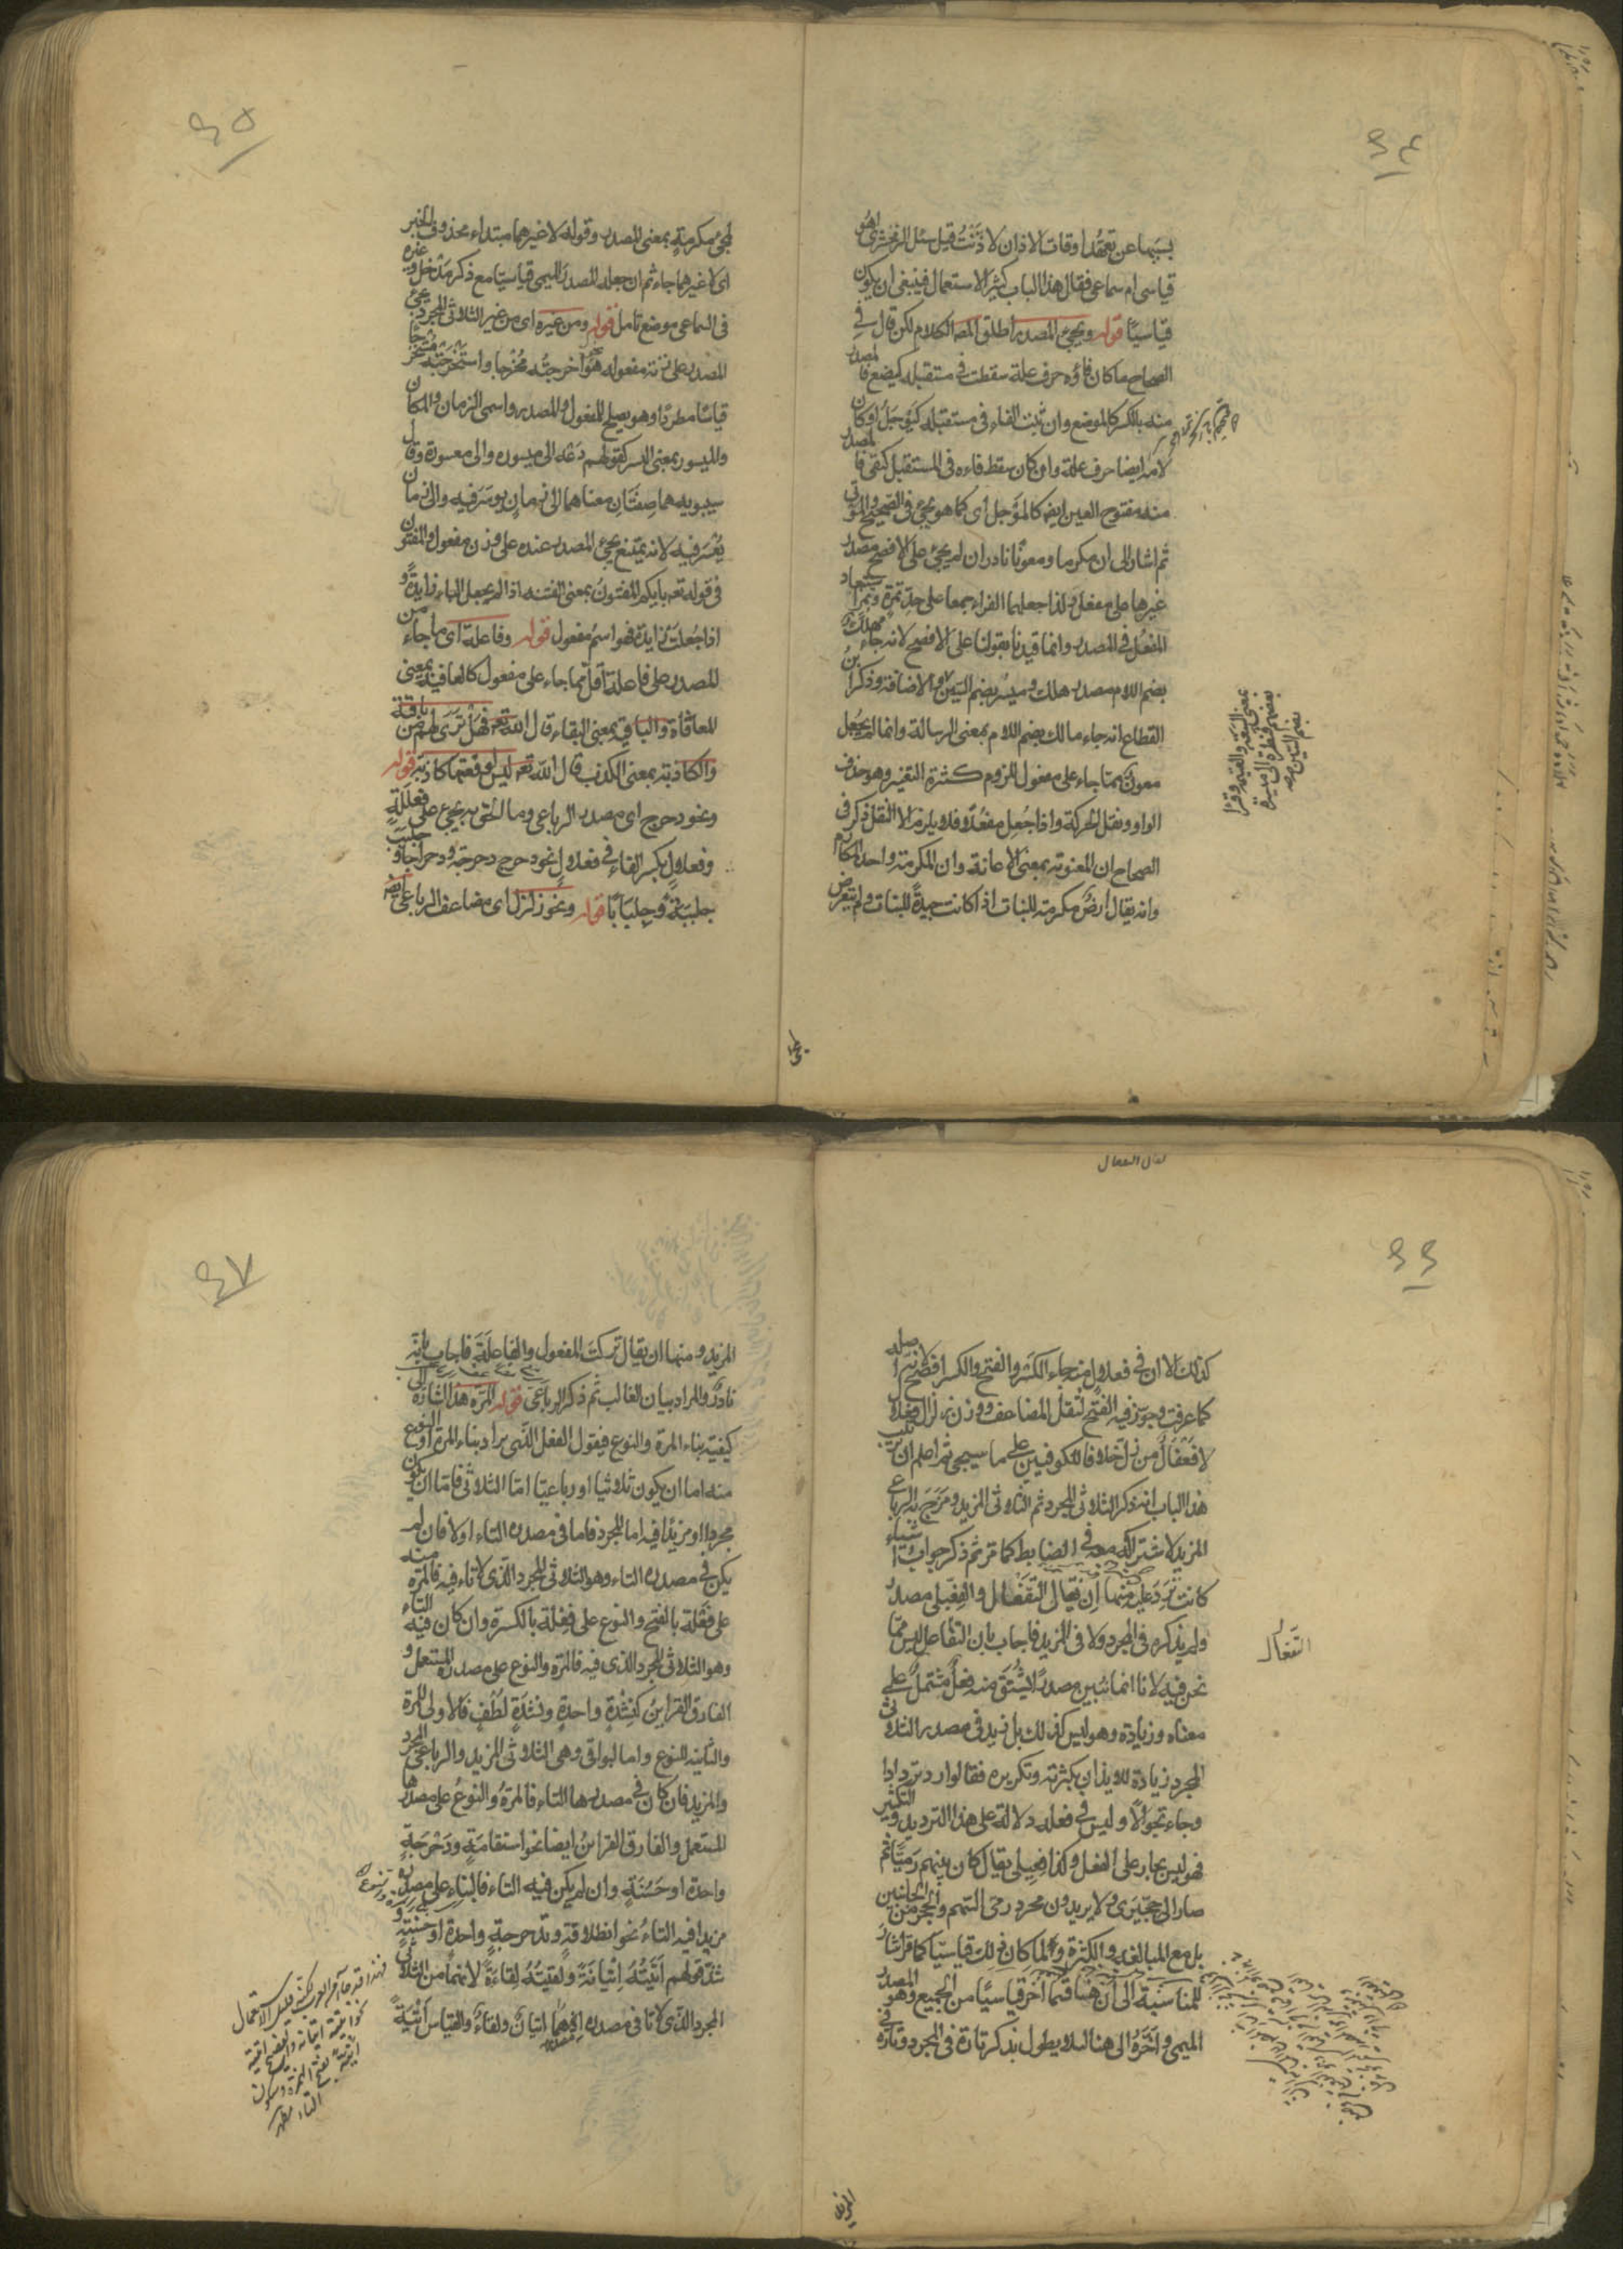 ٦٤
بسببها عن تعهد اوقات الاذان لاذنت قيل سئل الزمخشرى اهو
قياسى ام سماعى فقال هذا الباب كثير الاستعمال فينبغى ان يكون
قياسيا قوله ويجئ المصدر اطلق المصـ الكلام لكن قال فى
الصحاح ما كان فاؤه حرف علة سقطت فى مستقبله كيضع فالمصدر
منه بالكسر كالموضع وان ثبت الفاء فى مستقبله كيوجل او كان
لامه ايضا حرف علة وان كان سقط فاءه فى المستقبل كيقى فالمصدر
منه مفتوح العين ايضا كالموجل اى كما هو يجئ فى الصحيح والموقى
ثم اشار الى ان مكرما ومعونا نادران لم يجئ على الافصح مصدر
غيرها على مفعل ولذا جعلهما الفراء جمعا على حد تمرة وتمر
المفعل فى المصدر وانما قيدنا بقولنا على الافصح لانه جاء مهلك
بضم اللام مصدر هلك وميسر بضم السين والاضافة وذكر ابن
القطاع انه جاء مالك بضم اللام بمعنى الرسالة وانما لم يجعل
معون مما جاء على مفعول للزوم كثرة التغير وهو حذف
الواو ونقل الحركة واذا جعل مفعلا فلا يلزم الا النقل ذكر فى
الصحاح ان المعونة بمعنى الاعانة وان المكرمة واحد المكارم
وانه يقال ارض مكرمة للنبات اذا كانت جيدة للنبات ولم يتعرض
٦٥
لمجئ مكرمة بمعنى المصدر وقوله لا غيرهما مبتداء محذوف الخبر
اى لا غيرهما جاء ثم ان جعله المصدر الميمى قياسيا مع ذكر مدخل وغيره
فى السماعى موضع تامل قوله ومن غيره اى من غير الثلاثى المجرد يجئ
المصدر على زنة مفعوله نحو اخرجته مخرجا واستخرجته مستخرجا
قياسا مطردا وهو يصلح للمفعول والمصدر واسمى الزمان والمكان
والميسور بمعنى اليسر كقولهم دعه الى ميسوره والى معسوره وقال
سيبويه هما صفتان معناهما الى زمان يوسر فيه والى زمان
يعسر فيه لانه يمتنع مجئ المصدر عنده على وزن مفعول والمفتون
فى قوله تعـ بايكم المفتون بمعنى الفتنة اذا لم يجعل الباء زايدة و
اذا جعلت زايدة فهو اسم مفعول قوله وفاعلة اى ما جاء من
المصدر على فاعلة اقل مما جاء على مفعول كالعافية بمعنى
المعافاة والباقية بمعنى البقاء قال الله تعـ فهل ترى لهم من باقية
والكاذبة بمعنى الكذب قال الله تعـ ليس لوقعتها كاذبة قوله
ونحو دحرج اى مصدر الرباعى وما الحق به يجئ على فعللة
وفعلال بكسر الفاء فى فعلال نحو دحرج دحرجة ودحراجا و جلبب
جلببة وجلبابا قوله ونحو زلزل اى مضاعف الرباعى ايضـ
٦٦
كذلك الا ان فى فعلال منه جاء الكسر والفتح والكسر افصح لانه اصله
كما عرفت وجوز فيه الفتح لثقل المضاعف ووزن زلزل فعلل
لا فعفل من زل خلافا للكوفيين على ما سيجئ ثم اعلم ان ترتيب
هذا الباب انه ذكر الثلاثى المجرد ثم الثلاثى المزيد ومزج به الرباعى
المزيد لاشتراكه معه فى الضابط كما مر ثم ذكر جواب اشياء
كانت ترد عليه منها ان يقال التفعال والفعيلى مصدر
ولم يذكره فى المجرد ولا فى المزيد فاجاب بان التفاعل ليس مما
نحن فيه لانا انما نبين مصدرا يشتق منه فعل مشتمل على
معناه وزيادة وهو ليس كذلك بل زيد فى مصدر الثلاثى
المجرد زيادة للايذان بكثرته وتكريره فقالوا رد تردادا
وجاء تجوالا وليس فى فعله دلالة على هذا الترديد والتكثير
فهو ليس بجار على الفعل وكذا فعيلى يقال كان بينهم رميا ثم
صار الى حجيزى ولا يريدون مجرد رمى السهم والحجز من الجانبين
بل مع المبالغة والكثرة ولما كان ذلك قياسيا كما مر اشار
للمناسبة الى ان هنا قسما آخر قياسيا من الجميع وهو المصدر
الميمى واخره الى هنا لئلا يطول بذكر تارة فى المجرد وتارة فى
التفعال
٦٧
المزيد ومنها ان يقال تركت المفعول والفاعلة فاجاب بانه
نادر والمراد بيان الغالب ثم ذكر الرباعى قوله المرة هذا اشارة الى
كيفية بناء المرة والنوع فيقول الفعل الذى يراد بناء المرة او النوع
منه اما ان يكون ثلاثيا او رباعيا اما الثلاثى فاما ان يكون
مجردا او مزيدا فيه اما المجرد فاما فى مصدره التاء اولا فان لم
يكن فى مصدره التاء وهو الثلاثى المجرد الذى لا تاء فيه فالمرة منه
على فعلة بالفتح والنوع على فعلة بالكسرة وان كان فيه التاء
وهو الثلاثى المجرد الذى فيه فالمرة والنوع على مصدره المستعمل و
الفارق القرائن كنشدة واحدة ونشدة لطف فالاولى للمرة
والثانية للنوع واما البواقى وهى الثلاثى المزيد والرباعى المجرد
والمزيد فان كان فى مصدرها التاء فالمرة والنوع على مصدرها
المستعمل والفارق القرائن ايضا نحو استقامة ودحرجة
واحدة او حسنة وان لم يكن فيه التاء فالبناء على مصدره
مزيدا فيه التاء نحو انطلاقة وتدحرجة واحدة او حسنة و
شذ قولهم اتيته اتيانة ولقيته لقاءة لانهما من الثلاثى
المجرد الذى لا تا فى مصدره اذ هما اتيان ولقاء والقياس اتية